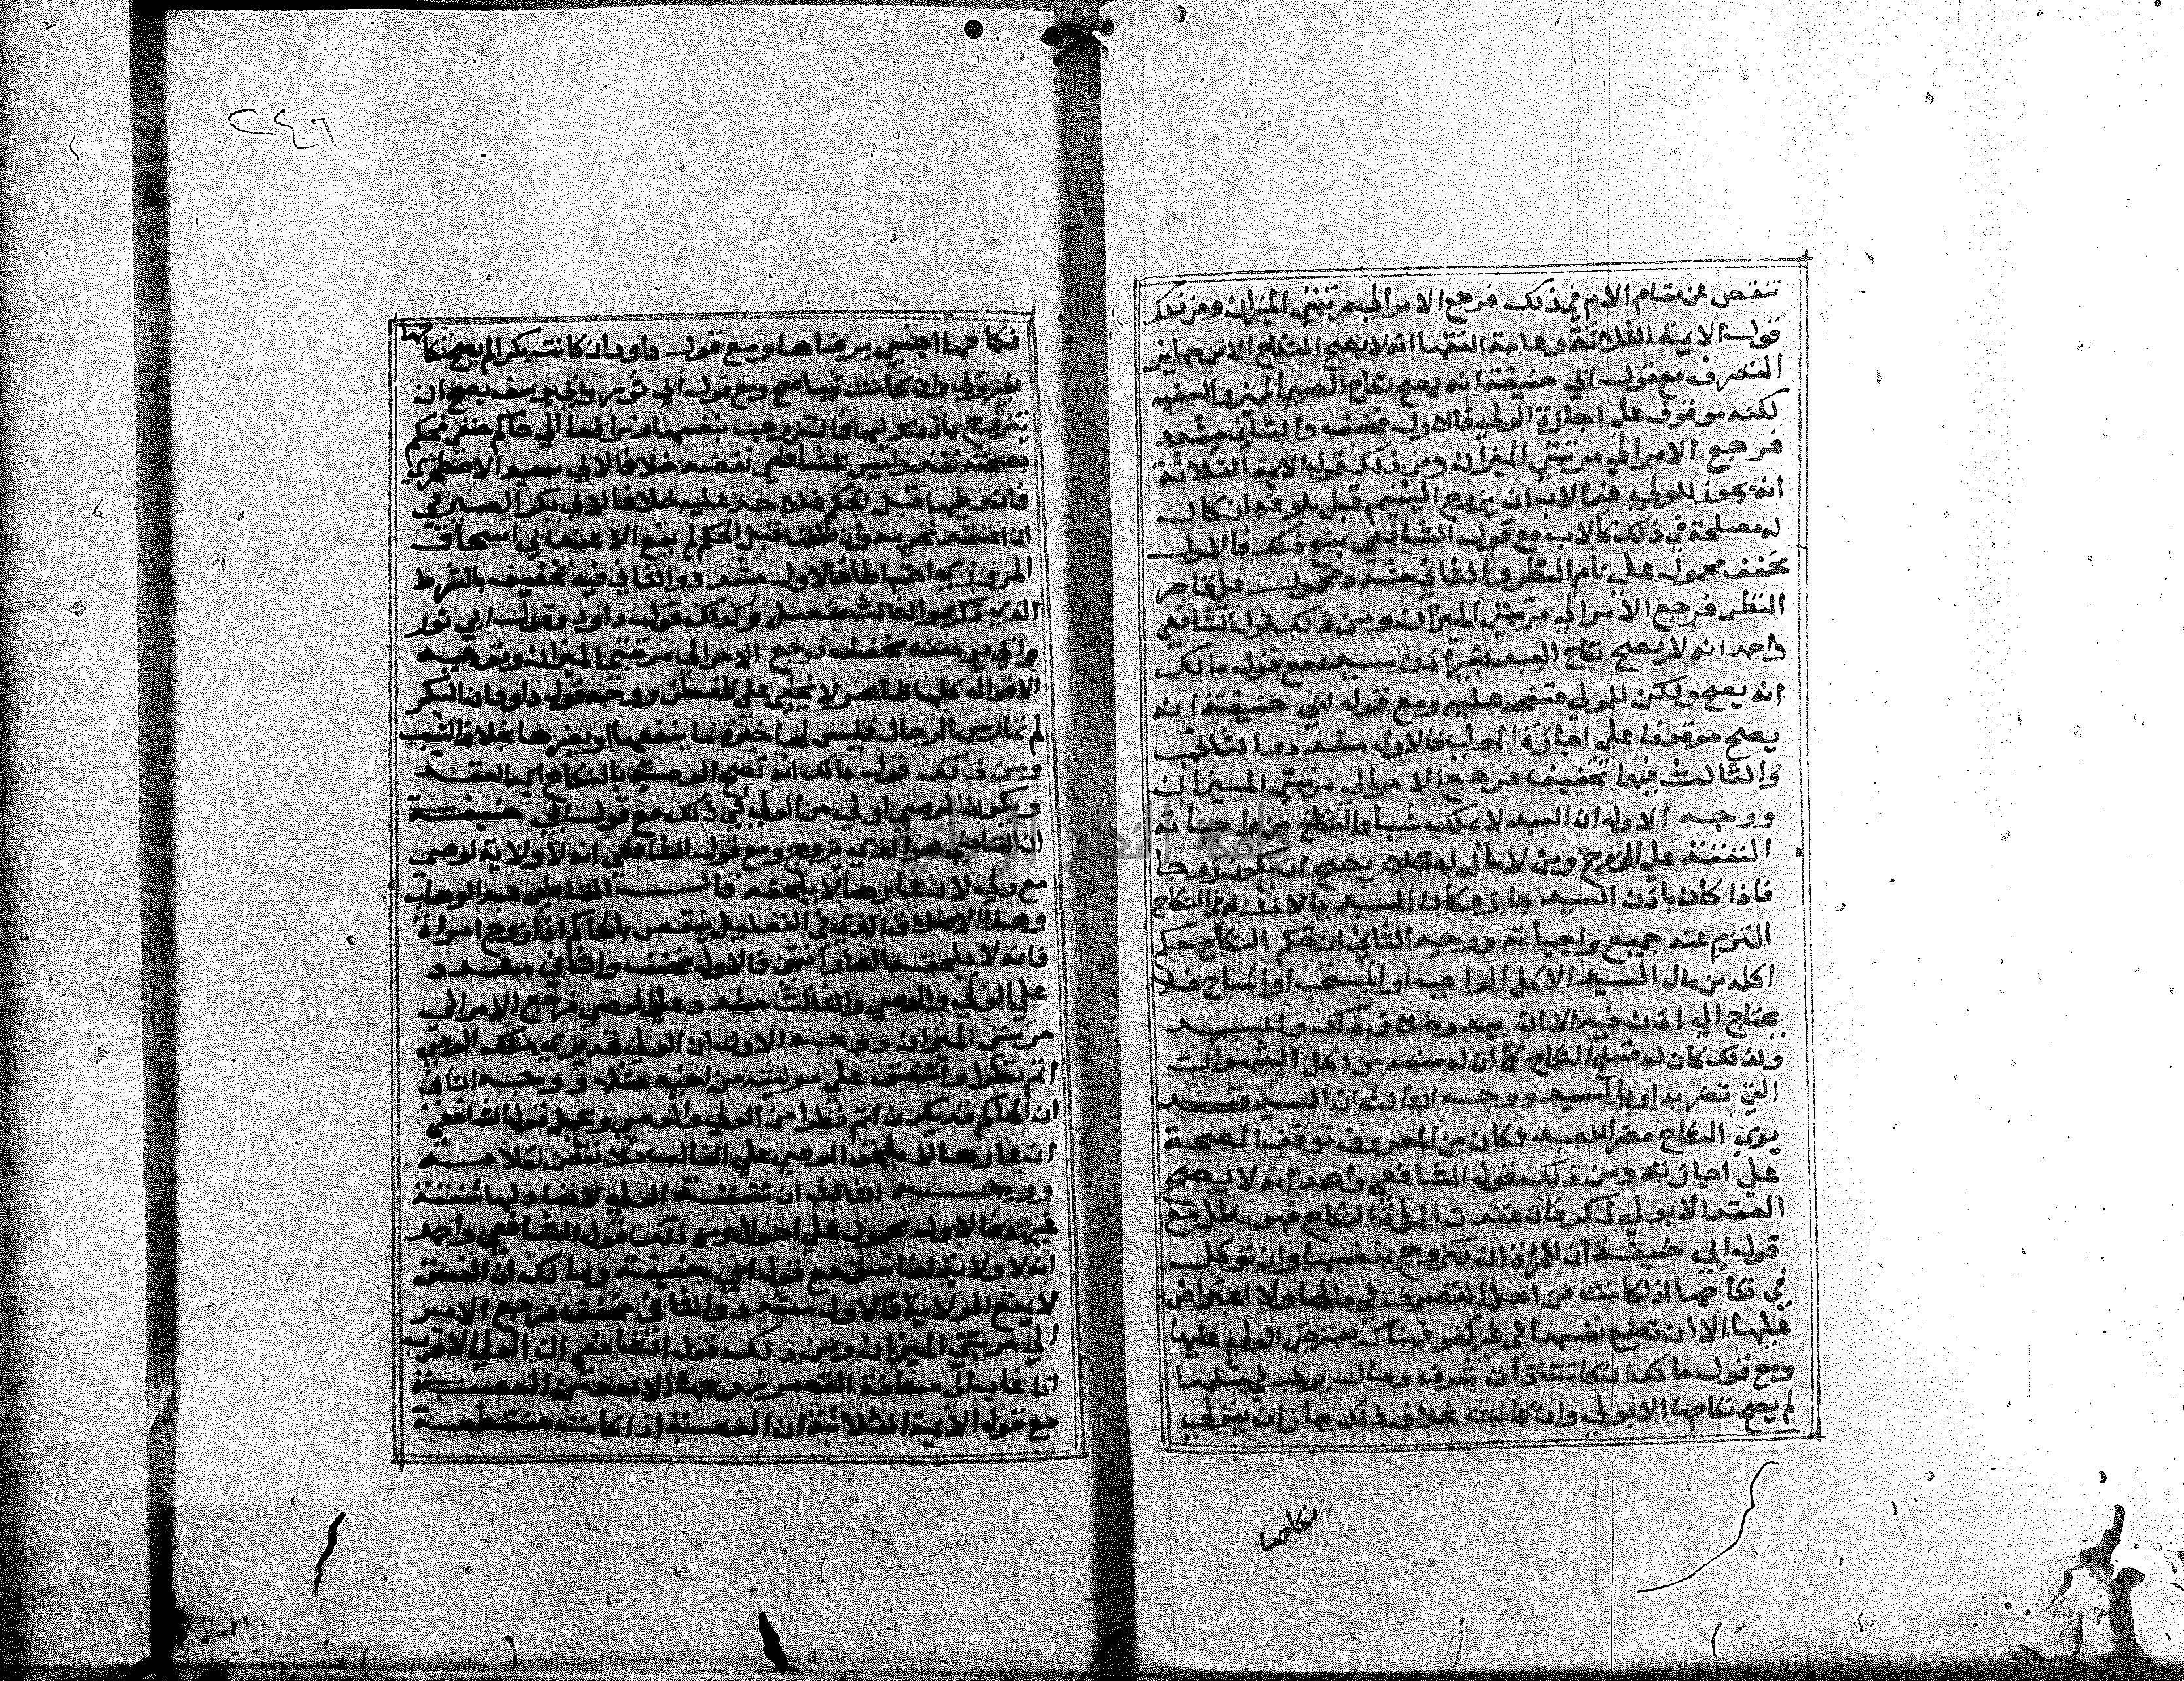 تنقص عن مقام الام في ذلك فرجع الامر الي مرتبتي الميزان ومن ذلك
قول الايمة الثلاثة وعامة الفقها انه لا يصح النكاح الا من جايز
التصرف مع قول ابي حنيفة انه يصح نكاح الصبي المميز والسفيه
لكنه موقوف علي اجازة الولي فالاول مخفف والثاني مشدد
فرجع الامر الي مرتبتي الميزان ومن ذلك قول الايمة الثلاثة
انه يجوز للولي غير الاب ان يزوج اليتيم قبل بلوغه ان كانت
له مصلحة في ذلك كالاب مع قول الشافعي بمنع ذلك فالاول
مخفف محمول علي تام النظر والثاني مشدد محمول علي قاصر
النظر فرجع الامر الي مرتبتي الميزان ومن ذلك قول الشافعي
واحمد انه لا يصح نكاح العبد بغير اذن سيده مع قول مالك
انه يصح ولكن للولي فسخه عليه ومع قول ابي حنيفة انه
يصح موقوفا علي اجازة الولي فالاول مشدد والثاني
والثالث فيهما تخفيف فرجع الامر الي مرتبتي الميزان
ووجه الاول ان العبد لا يملك شيا والنكاح من واجباته
النفقة علي الزوج ومن لا مال له فلا يصح ان يكون زوجا
فاذا كان باذن السيد جاز وكان السيد بالاذن له في النكاح
التزم عنه جميع واجباته ووجه الثاني ان حكم النكاح حكم
اكله من مال السيد الاكل الواجب او المستحب او المباح فلا
يحتاج الي اذن فيه الا ان يبدو خلاف ذلك والسيد
ولذلك كان له فسخ النكاح كما ان له منعه من اكل الشهوات
التي تضر به او بالسيد ووجه الثالث ان السيد قد
يري النكاح مضرا للعبد فكان من المعروف توقف الصحة
علي اجازته ومن ذلك قول الشافعي واحمد انه لا يصح
العقد الا بولي ذكر فان عقدت المراة النكاح فهو باطل مع
قول ابي حنيفة ان للمراة ان تتزوج بنفسها وان توكل
في نكاحها اذا كانت من اهل التصرف في مالها ولا اعتراض
عليها الا ان تضع نفسها في غير كفو فهناك يعترض الولي عليها
ومع قول مالك ان كانت ذات شرف ومال يرغب في مثلها
لم يصح نكاحها الا بولي وان كانت بخلاف ذلك جاز ان يتولي
نكاحها
٢٤٦
نكاحها اجنبي برضاها ومع قول داود ان كانت بكرا لم يصح نكاحها
بغير ولي وان كانت ثيبا صح ومع قول ابي ثور وابي يوسف يصح ان
تتزوج باذن وليها فان تزوجت بنفسها وترافعا الي حاكم حنفي فحكم
بصحته نفذ وليس للشافعي نقضه خلافا لابي سعيد الاصطخري
فان وطيها قبل الحكم فلا حد عليه خلافا لابي بكر الصيرفي
ان اعتقد تحريمه وان طلقها قبل الحكم لم يقع الا عند ابي اسحاق
المروزي احتياطا فالاول مشدد والثاني فيه تخفيف بالشرط
الذي ذكره والثالث مفصل وكذلك قول داود وقول ابي ثور
وابي يوسف مخفف فرجع الامر الي مرتبتي الميزان وتوجيه
الاقوال كلها ظاهر لا يخفي علي الفطن ووجه قول داود ان البكر
لم تمارس الرجال فليس لها خبرة بما ينفعها او يضرها بخلاف الثيب
ومن ذلك قول مالك انه تصح الوصية بالنكاح اي بالعقد
ويكون الوصي اولي من الولي في ذلك مع قول ابي حنيفة
ان القاضي هو الذي يزوج ومع قول الشافعي انه لا ولاية لوصي
مع ولي لان عارها لا يلحقه قال القاضي عبد الوهاب
وهذا الاطلاق الذي في التعليل ينتقص بالحاكم اذا زوج امراة
فانه لا يلحقه العار انتهي فالاول مخفف والثاني مشدد
علي الولي والوصي والثالث مشدد علي الوصي فرجع الامر الي
مرتبتي الميزان ووجه الاول ان الولي قد يري ذلك الوصي
اتم نظرا واشفق علي موليته من اهله مثلا ووجه الثاني
ان الحاكم قد يكون اتم نظرا من الولي والوصي ويحمل قول الشافعي
ان عارها لا يلحق الوصي علي الغالب فلا نقض لكلامه
ووجه الثالث ان شفقة الولي لا يضاهيها شفقة
غيره فالاول محمول علي احوال ومن ذلك قول الشافعي واحمد
انه لا ولاية لفاسق مع قول ابي حنيفة ومالك ان الفسق
لا يمنع الولاية فالاول مشدد والثاني مخفف فرجع الامر
الي مرتبتي الميزان ومن ذلك قول الشافعي ان الولي الاقرب
اذا غاب الي مسافة القصر زوجها الابعد من العصبة
مع قول الايمة الثلاثة ان العصبة اذا كانت منقطعة